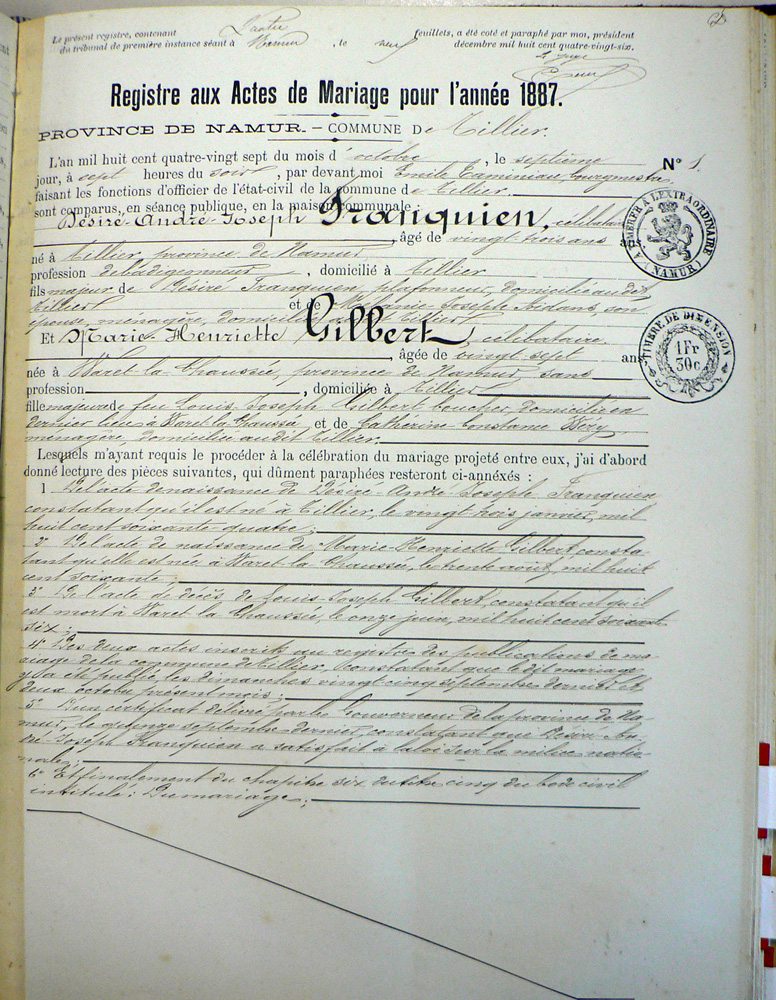 Le présent registre, contenant Quatre feuillets, a été coté et paraphé par moi, président
du tribunal de première instance séant à Namur, le neuf décembre mil huit cent quatre-vingt-six.
Registre aux Actes de Mariage pour l'année 1887.
PROVINCE DE NAMUR. – COMMUNE De Tillier.
L'an mil huit cent quatre-vingt sept du mois d'octobre, le septième
N° 1.
jour, à sept heures du soir, par devant moi Emile Caminiau bourgmestre
faisant les fonctions d'officier de l'état-civil de la commune de Tillier.
sont comparus, en séance publique, en la maison communale :
Désiré-André-Joseph Franquien, célibataire
âgé de vingt trois ans ans
né à Tillier, province de Namur
profession de badigeonneur, domicilié à Tillier
fils majeur de Désiré Franquien, plafonneur, domicilié au dit
Tillier et de Mélanie Joseph son
épouse ménagère, domiciliée Tillier
Et Marie Henriette Gilbert, célibataire
âgée de vingt sept ans
née à Waret-la-Chaussée, province de Namur sans
profession, domiciliée à Tillier
fille majeure de feu Louis Joseph Gilbert boucher, domicilié en
dernier lieu à Waret-la-Chaussée et de Catherine Constance Wéry
ménagère, domiciliée au dit Tillier.
Lesquels m'ayant requis le procéder à la célébration du mariage projeté entre eux, j'ai d'abord
donné lecture des pièces suivantes, qui dûment paraphées resteront ci-annéxés :
1 De l'acte de naissance de Désiré-André-Joseph Franquien
constatant qu'il est né à Tillier, le vingt trois janvier, mil
huit cent soixante-quatre ;
2° De l'acte de naissance de Marie-Henriette Gilbert, consta-
tant qu'elle est née à Waret-la-Chaussée, le trente août, mil huit
cent soixante ;
3° De l'acte de décès de Louis-Joseph Gilbert, constatant qu'il
est mort à Waret-la-Chaussée, le onze juin, mil huit cent soixante
six ;
4° Des deux actes inscrits au registre des publications de ma-
riage de la commune de Tillier, constatant que le dit mariage
y a été publié, les dimanches vingt cinq septembre dernier et
deux octobre présent mois ;
5° D'un certificat délivré par le Gouverneur de la province de Na-
mur, le quinze septembre dernier, constatant que Désiré-An-
dré-Joseph Franquien a satisfait à la loi sur la milice natio-
nale ;
6° Et finalement du chapitre six du titre cinq du code civil
intitulé : Du mariage ;
TIMBRE DE DIMENSION
1 Fr
30c
A TIMBRER A L'EXTRAORDINAIRE
(NAMUR)